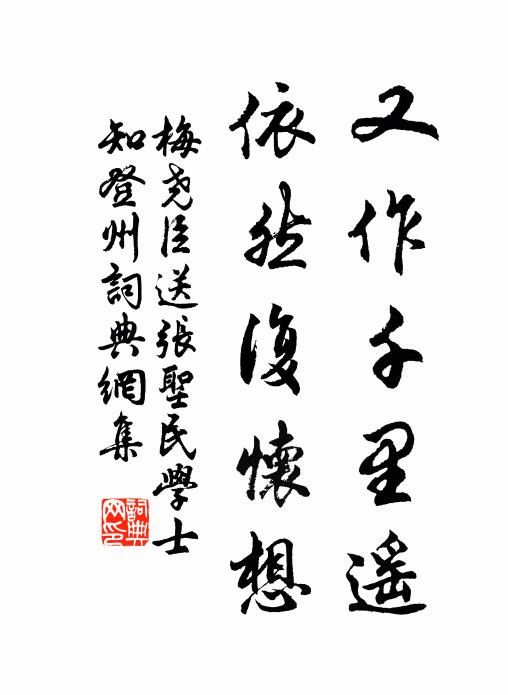 又作千里遥
依然復懷想
梅堯臣送張聖民學士
知登州詞典網集
詞典
网印